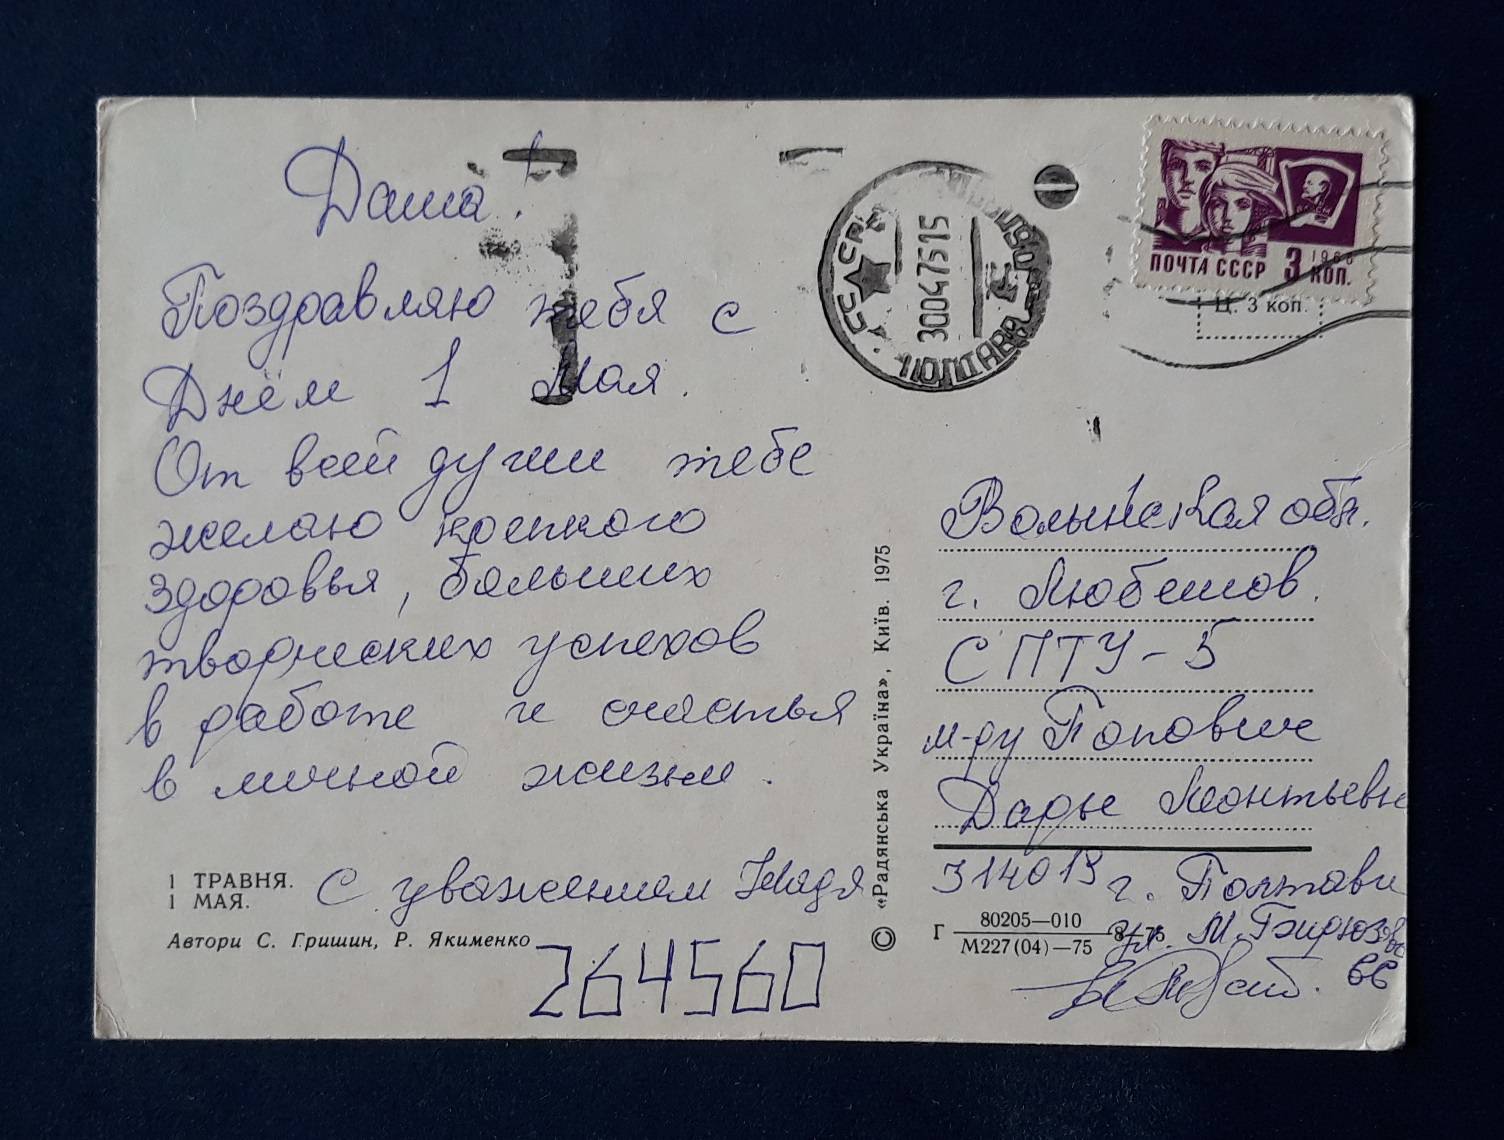 Даша!
Поздравляю тебя с
Днём 1 Мая.
От всей души тебе
желаю крепкого
здоровья, больших
творческих успехов
в работе и счастья
в личной жизни.
С уважением Надя
1 ТРАВНЯ.
1 МАЯ.
Автори С. Гришин, Р. Якименко
264560
«Радянська Україна», Київ. 1975
©
СССР
ПОЛТАВА
30047515
ПОЧТА СССР 3 КОП.
1966
Ц. 3 коп.
Волынская обл.
г. Любешов.
СПТУ-5
Попович
Дарье Леонтьевн
314019 г. Полтава
ул. М. Бирюзова
Г 80205—010
М227(04)—75 8—75